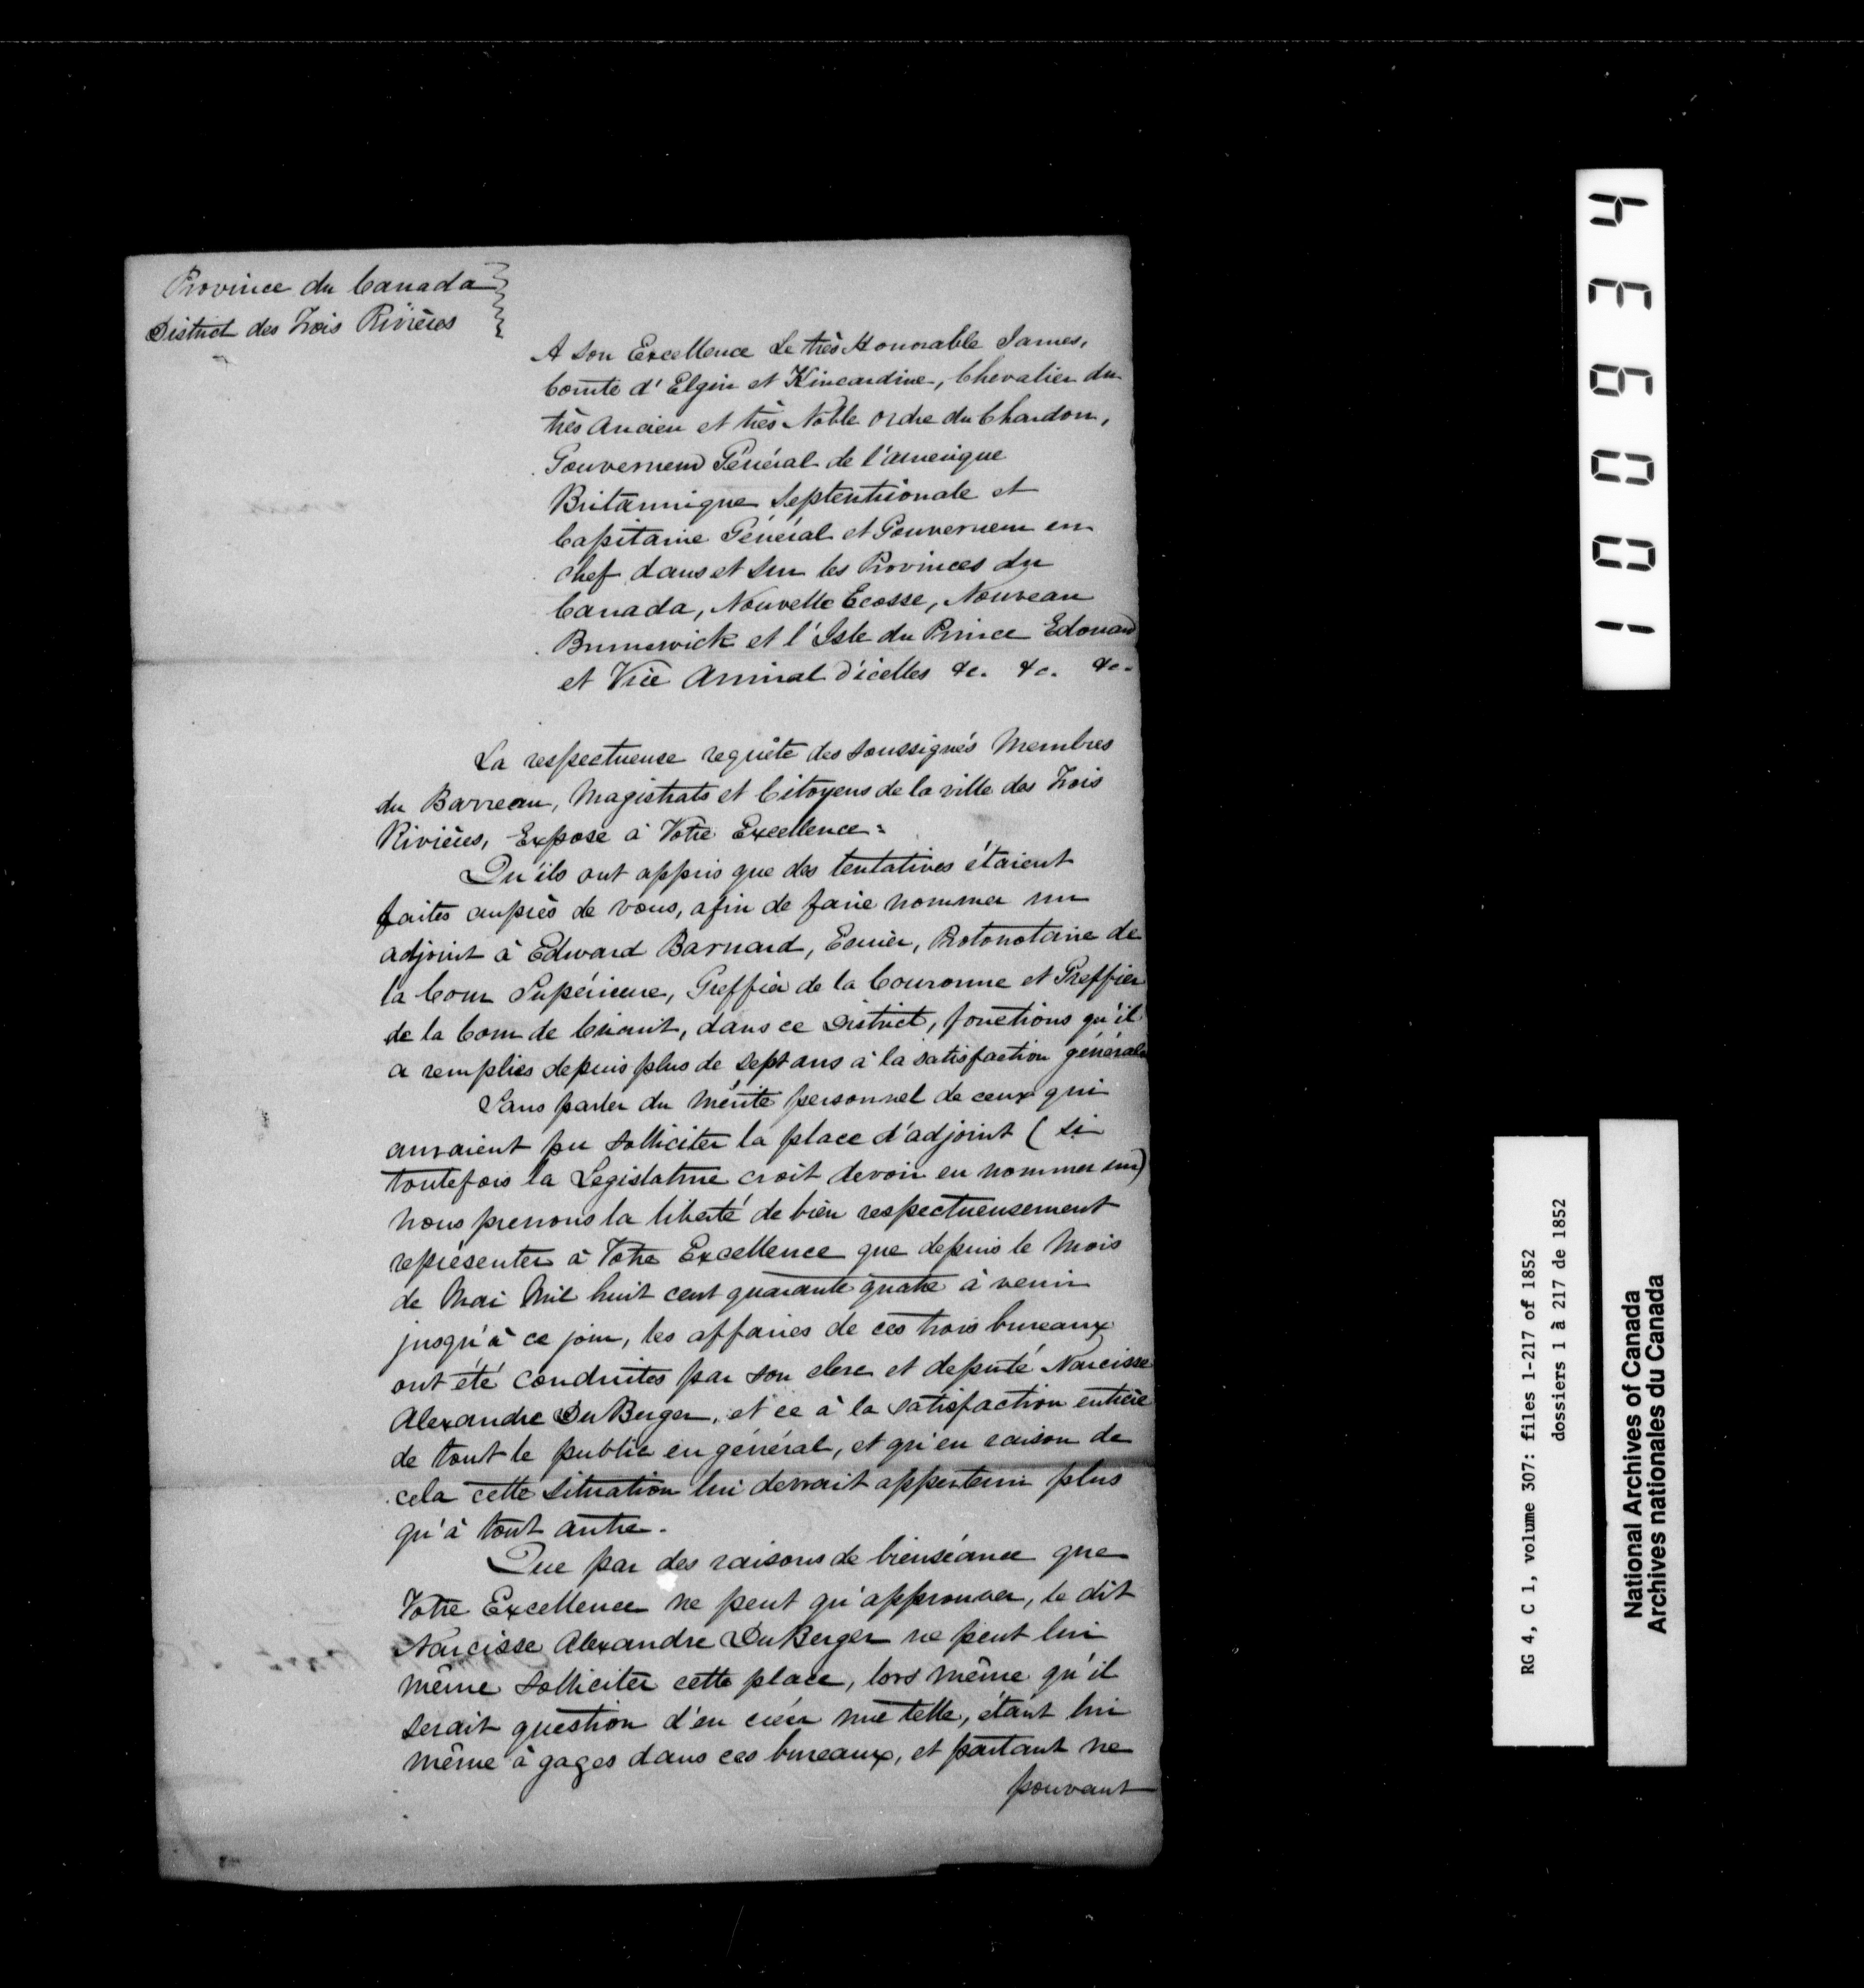 Province du Canada
District des Trois Rivières
A Son Excellence Le très Honorable James,
Comte d'Elgin et Kincardine, Chevalier du
très Ancien et très Noble Ordre du Chardon,
Gouverneur Général de l'amerique
Britannique Septentrionale et
Capitaine Général et Gouverneur en
chef dans et sur les Provinces du
Canada, Nouvelle Ecosse, Nouveau
Brunswick et l'Isle du Prince Edouard
et Vice Amiral d'icelles &c. &c. &c.
La respectueuse requête des soussignés Membres
du Barreau, Magistrats et Citoyens de la ville des Trois
Rivières, Expose à Votre Excellence:
Qu'ils ont appris que des tentatives étaient
faites auprès de vous, afin de faire nommer un
adjoint à Edward Barnard, Ecuier, Protonotaire de
la Cour Supérieure, Greffier de la Couronne et Greffier
de la Cour de Circuit, dans ce District, fonctions qu'il
a remplies depuis plus de sept ans à la satisfaction générale
Sans parler du mérite personnel de ceux qui
auraient pu solliciter la place d'adjoint (si
toutefois la Législature croit devoir en nommer un)
nous prenons la liberté de bien respectueusement
représenter à Votre Excellence que depuis le Mois
de Mai Mil huit cent quarante quatre à venir
jusqu'à ce jour, les affaires de ces trois bureaux
ont été conduites par son clerc et député Narcisse
Alexandre DuBerger, et ce à la satisfaction entière
de tout le public en général, et qu'en raison de
cela cette situation lui devrait appartenir plus
qu'à tout autre.
Que par des raisons de bienséance que
Votre Excellence ne peut qu'approuver, le dit
Narcisse Alexandre DuBerger ne peut lui
même solliciter cette place, lors même qu'il
serait question d'en créer une telle, étant lui
même à gages dans ces bureaux, et partant ne
pouvant
100934
RG 4, C 1, volume 307: files 1-217 of 1852
dossiers 1 à 217 de 1852
National Archives of Canada
Archives nationales du Canada